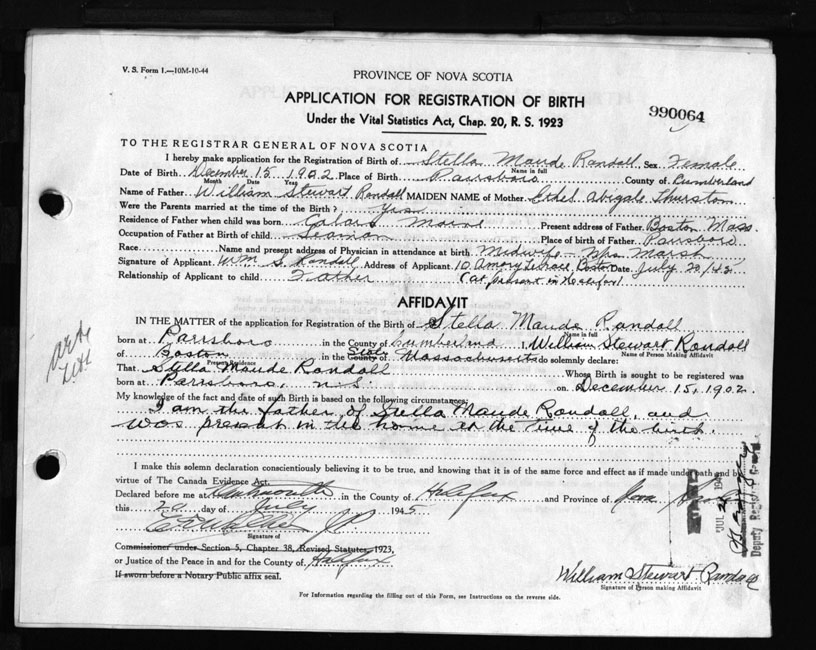 V. S. Form 1.—10M-10-44
PROVINCE OF NOVA SCOTIA
APPLICATION FOR REGISTRATION OF BIRTH
990064
Under the Vital Statistics Act, Chap. 20, R. S. 1923
TO THE REGISTRAR GENERAL OF NOVA SCOTIA
I hereby make application for the Registration of Birth of Stella Maude Randall Sex Female
Name in full
Date of Birth December 15 1902 Place of Birth Parrsboro County of Cumberland
Month Date Year
Name of Father William Stewart Randall MAIDEN NAME of Mother Ethel Abigale Thurston
Were the Parents married at the time of the Birth? Yes
Residence of Father when child was born Calais Maine Present address of Father Boston Mass.
Occupation of Father at Birth of child Seaman Place of birth of Father Parrsboro
Race Name and present address of Physician in attendance at birth Midwife - Mrs Marsh
Signature of Applicant Wm S. Randall Address of Applicant 10 Terrace Boston Date July 20/45
Relationship of Applicant to child Father (at present in Halifax)
AFFIDAVIT
IN THE MATTER of the application for Registration of the Birth of Stella Maude Randall
Name in full
born at Parrsboro in the County of Cumberland I, William Stewart Randall
of Boston in the County of State Massachusetts do solemnly declare:
Present Residence Name of Person Making Affidavit
That Stella Maude Randall Whose Birth is sought to be registered was
born at Parrsboro, N.S. on December 15, 1902.
My knowledge of the fact and date of such Birth is based on the following circumstances:
I am the father of Stella Maude Randall, and
was present in the home at the time of the birth.
I make this solemn declaration conscientiously believing it to be true, and knowing that it is of the same force and effect as if made under oath and by
virtue of The Canada Evidence Act.
Declared before me at Dartmouth in the County of Halifax and Province of Nova Scotia
this 20 day of July 1945
J P
Signature of
Commissioner under Section 5, Chapter 38, Revised Statutes, 1923,
or Justice of the Peace in and for the County of Halifax
If sworn before a Notary Public affix seal.
William Stewart Randall
Signature of Person making Affidavit
For Information regarding the filling out of this Form, see Instructions on the reverse side.
JUL
Deputy Registrar General